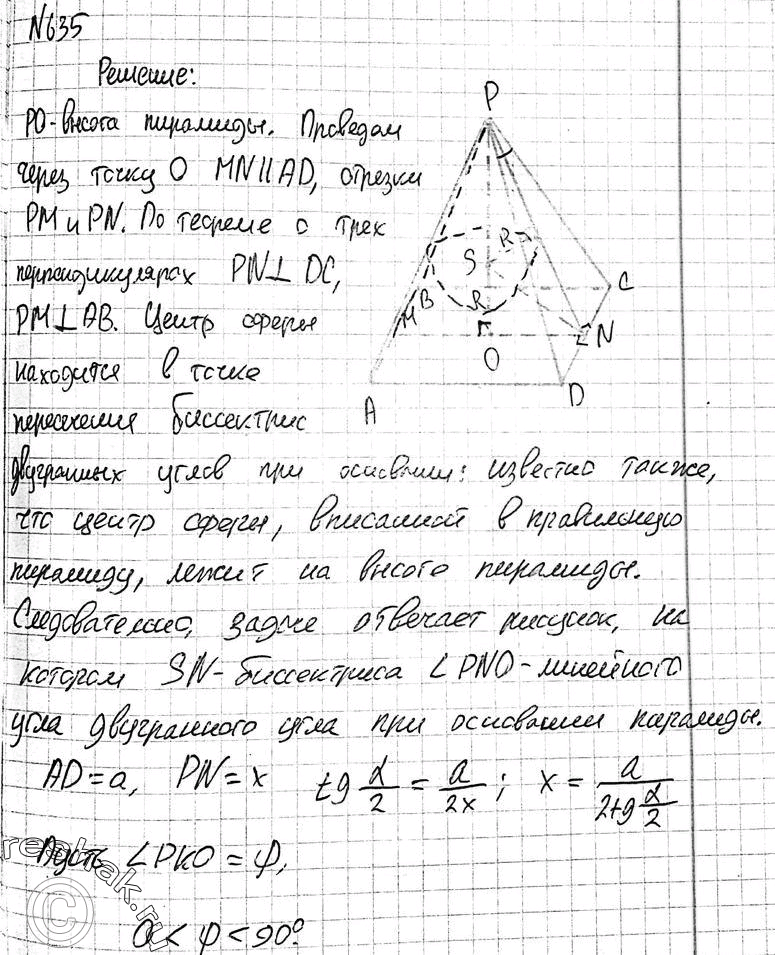 N635
Решение:
PO-высота пирамиды. Проведем
через точку O MN||AD, отрезки
PM и PN. По теореме о трех
перпендикулярах PN⊥DC,
PM⊥AB. Центр сферы
находится в точке
пересечения биссектрис
двугранных углов при основании; известно также,
что центр сферы, вписанной в правильную
пирамиду, лежит на высоте пирамиды.
Следовательно, задаче отвечает рисунок, на
котором SN-биссектриса ∠PNO-линейного
угла двугранного угла при основании пирамиды.
AD=a, PN=x tg α/2 = a/2x; x = a/(2tg α/2)
Пусть ∠PKO = φ,
0 < φ < 90°.
P
R
S
B
C
M
R
N
O
A
D
reshak.ru
©